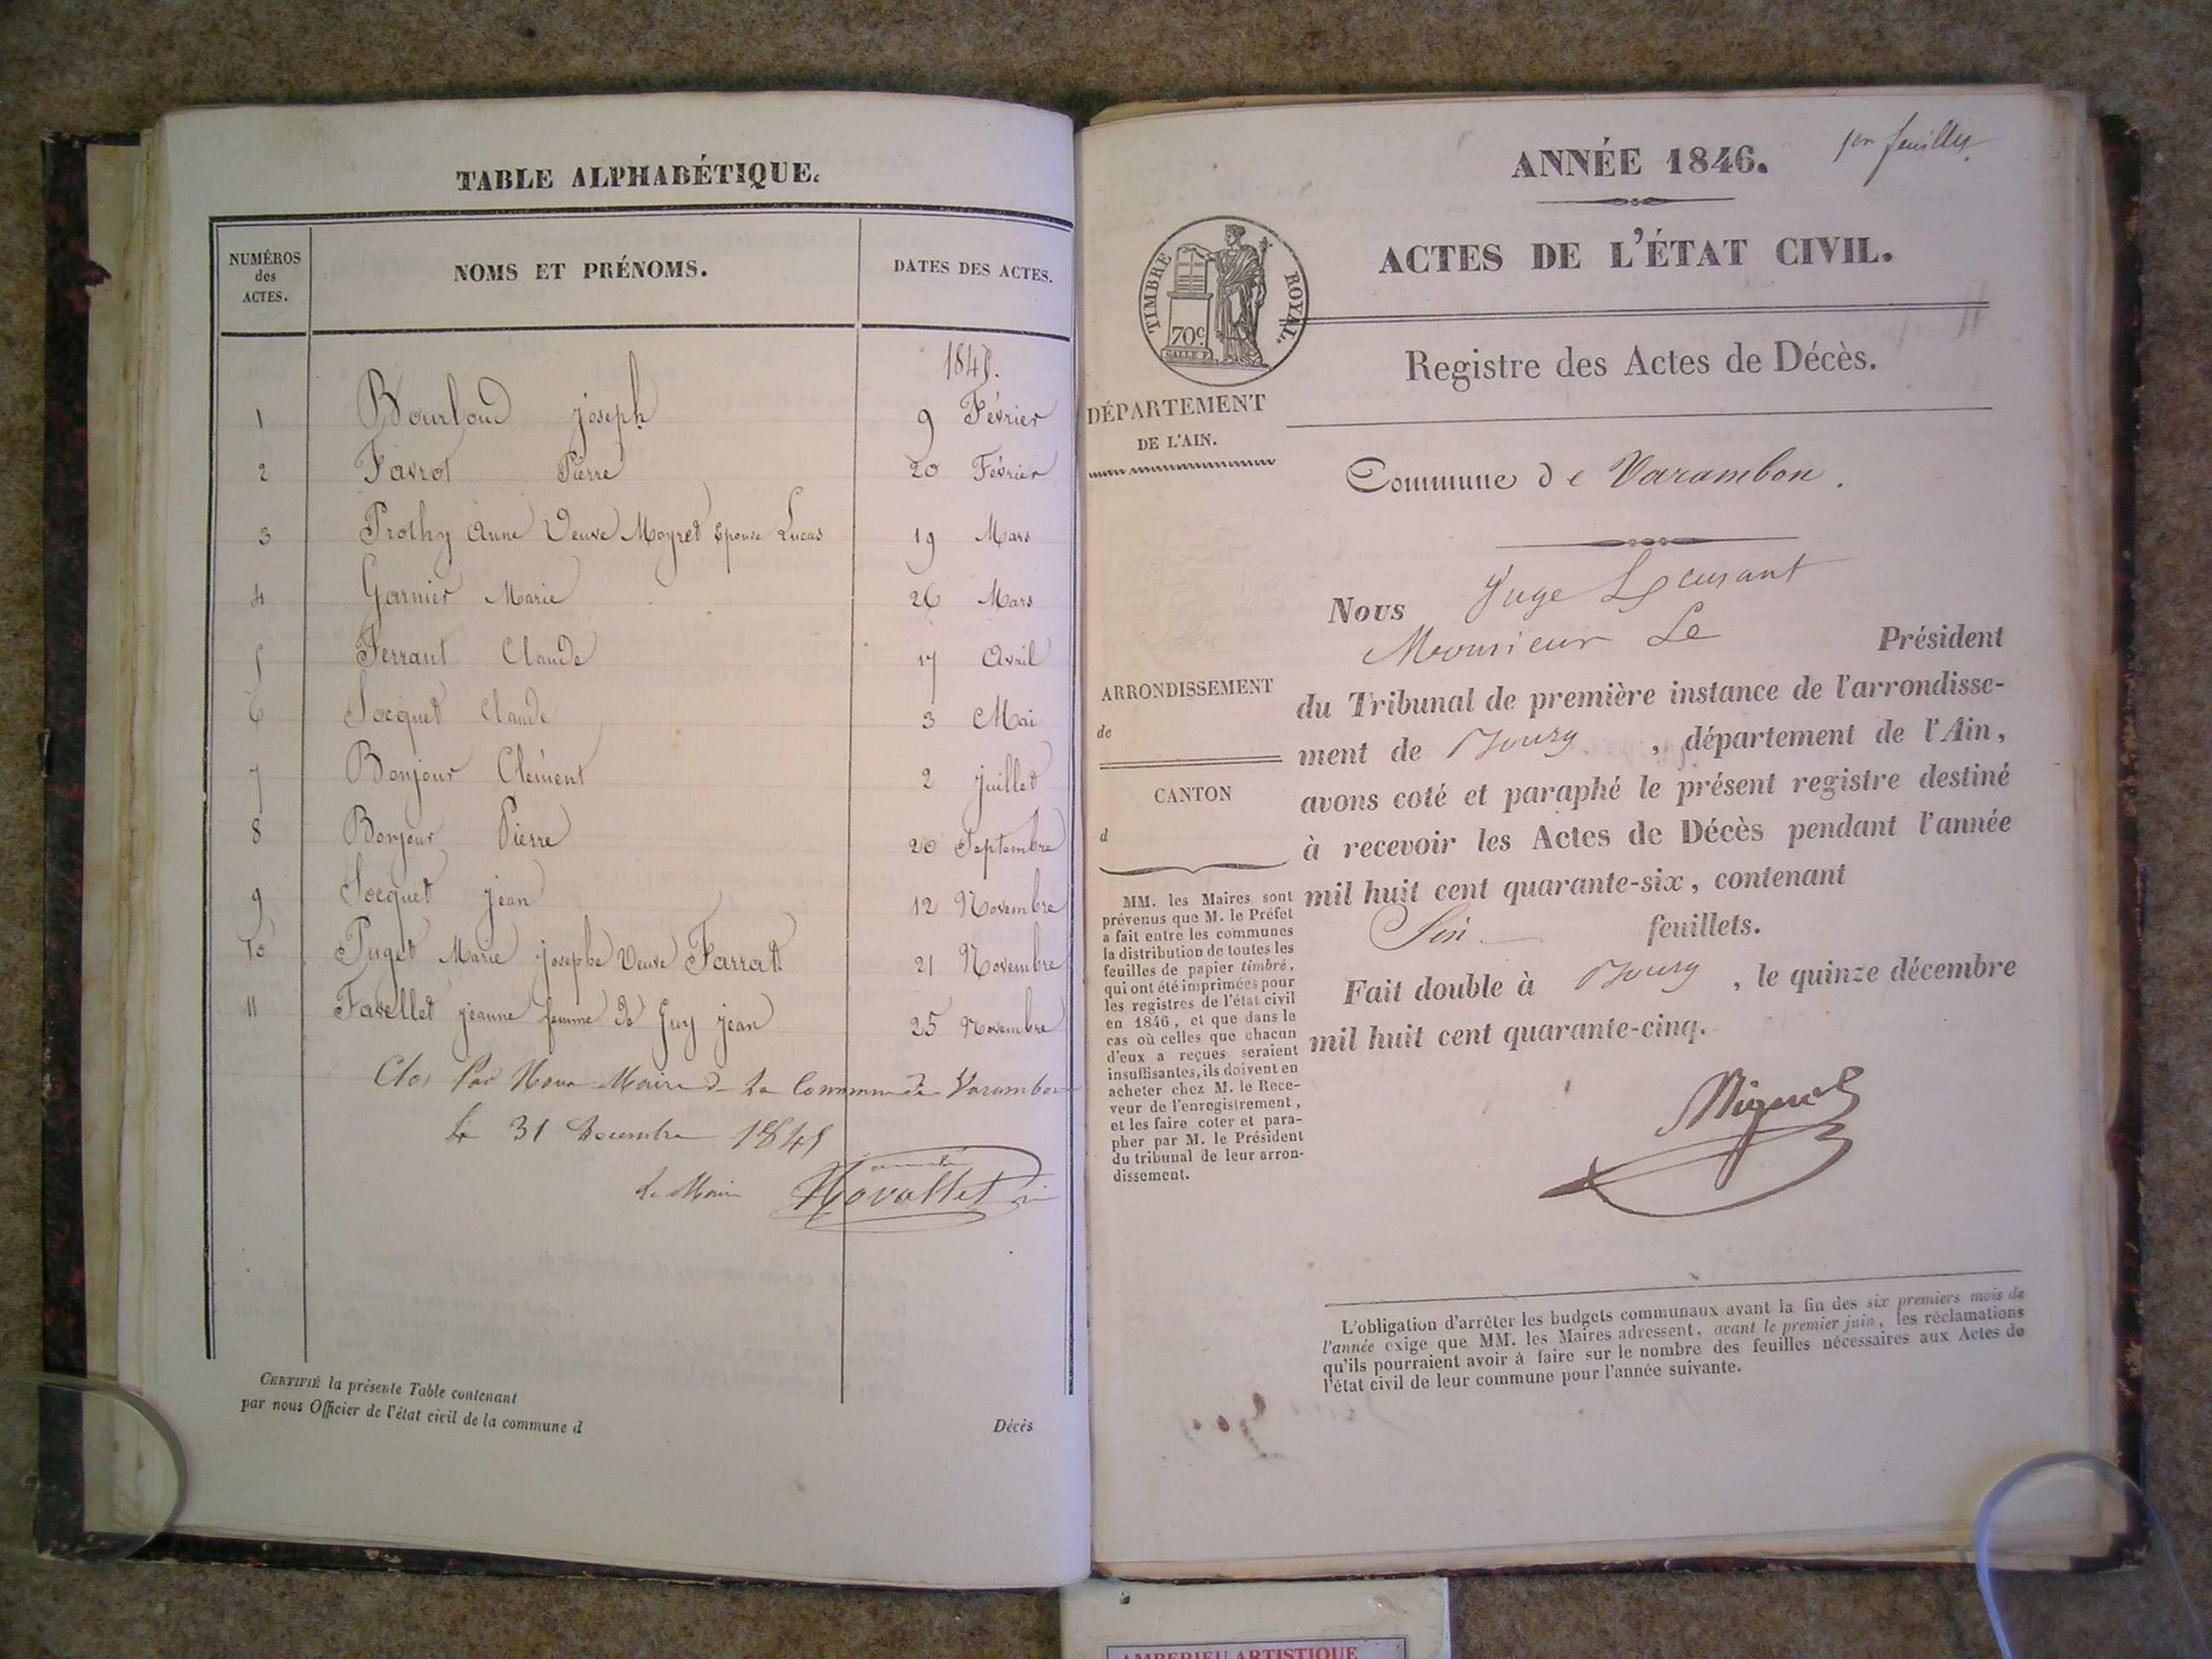 TABLE ALPHABÉTIQUE.
NUMÉROS
des
ACTES.
NOMS ET PRÉNOMS.
DATES DES ACTES.
1845.
1 Bourloud joseph 9 Février
2 Favrot Pierre 20 Février
3 Prothy Anne Veuve Moyret Epouse Lucas 19 Mars
4 Garnier Marie 26 Mars
5 Ferrant Claude 17 Avril
6 Socquet Claude 3 Mai
7 Bonjour Clément 2 juillet
8 Bonjour Pierre 20 Septembre
9 Socquet jean 12 Novembre
10 Puget Marie josephe Veuve Farrat 21 Novembre
11 Favellet jeanne femme de Guy jean 25 Novembre
Clos Par Nous Maire de La Commune de Varambon
Le 31 Decembre 1845
Le Maire
CERTIFIÉ la présente Table contenant
par nous Officier de l'état civil de la commune d
Décès
ANNÉE 1846.
1er feuillet
ACTES DE L'ÉTAT CIVIL.
TIMBRE ROYAL.
70c
Registre des Actes de Décès.
DÉPARTEMENT
DE L'AIN.
Commune de Varambon.
Nous Juge
Monsieur Le Président
du Tribunal de première instance de l'arrondisse-
ment de Bourg, département de l'Ain,
avons coté et paraphé le présent registre destiné
à recevoir les Actes de Décès pendant l'année
mil huit cent quarante-six, contenant
Six feuillets.
Fait double à Bourg, le quinze décembre
mil huit cent quarante-cinq.
ARRONDISSEMENT
de
CANTON
d
MM. les Maires sont
prévenus que M. le Préfet
a fait entre les communes
la distribution de toutes les
feuilles de papier timbré,
qui ont été imprimées pour
les registres de l'état civil
en 1846, et que dans le
cas où celles que chacun
d'eux a reçues seraient
insuffisantes, ils doivent en
acheter chez M. le Rece-
veur de l'enregistrement,
et les faire coter et para-
pher par M. le Président
du tribunal de leur arron-
dissement.
L'obligation d'arrêter les budgets communaux avant la fin des six premiers mois de
l'année exige que MM. les Maires adressent, avant le premier juin, les réclamations
qu'ils pourraient avoir à faire sur le nombre des feuilles nécessaires aux Actes de
l'état civil de leur commune pour l'année suivante.
AMBERIEU ARTISTIQUE